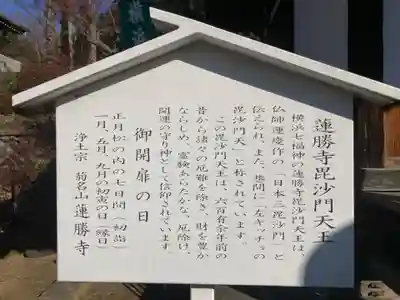 横浜
蓮勝寺毘沙門天王
横浜七福神の蓮勝寺毘沙門天王は
仏師運慶作の「日本三毘沙門」と
伝えられ、また、巷間に「左キッチョの
毘沙門天」と称されています。
この毘沙門天王は、六百有余年前の
昔から諸々の厄難を除き、財を豊か
ならしめ、霊験あらたかな、厄除け、
開運の守り神として信仰されています。
御開扉の日
正月松の内の七日間（初詣）
一月、五月、九月の初寅の日（縁日）
浄土宗 菊名山 蓮勝寺